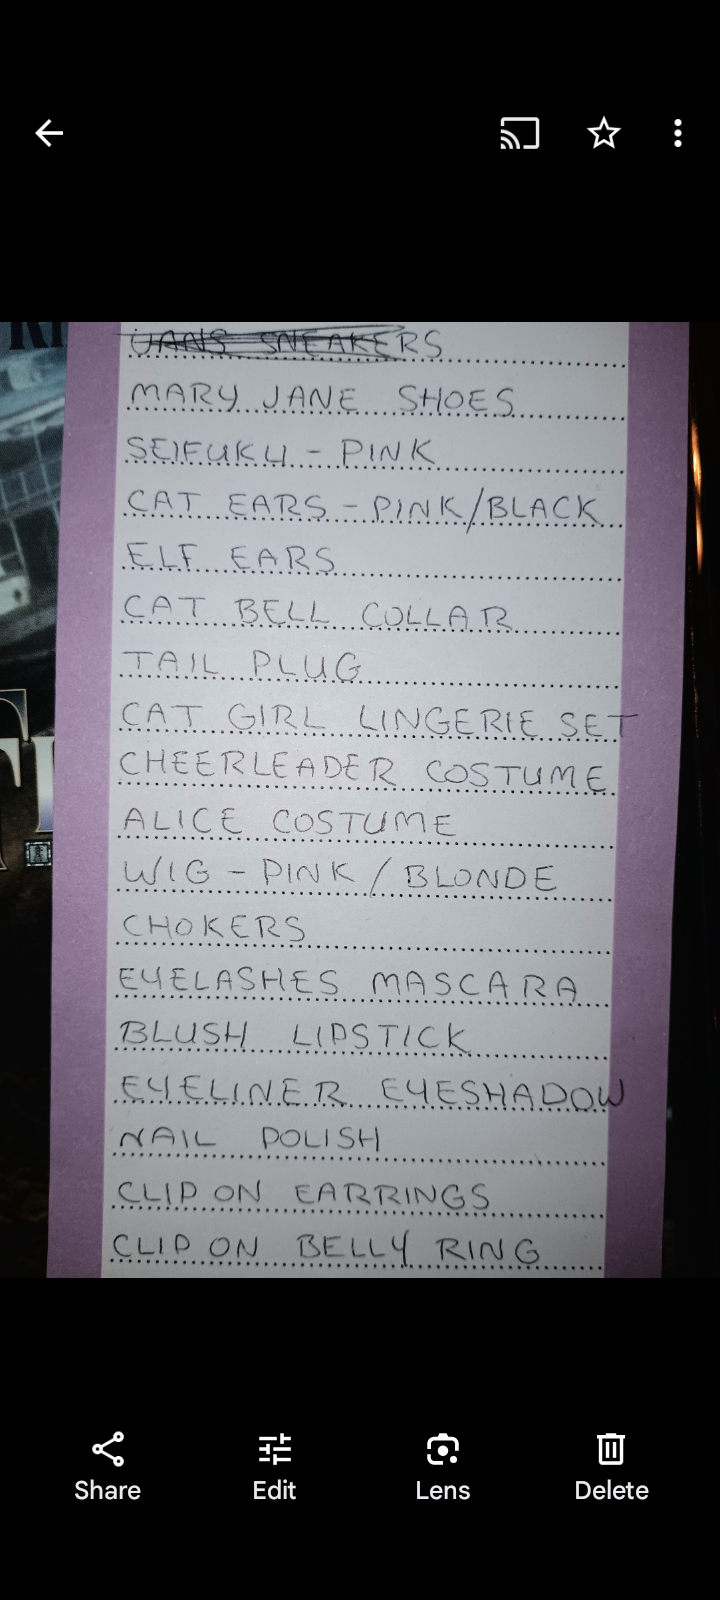 VANS SNEAKERS
MARY JANE SHOES
SEIFUKU - PINK
CAT EARS - PINK/BLACK
ELF EARS
CAT BELL COLLAR
TAIL PLUG
CAT GIRL LINGERIE SET
CHEERLEADER COSTUME
ALICE COSTUME
WIG - PINK / BLONDE
CHOKERS
EYELASHES MASCARA
BLUSH LIPSTICK
EYELINER EYESHADOW
NAIL POLISH
CLIP ON EARRINGS
CLIP ON BELLY RING
Share Edit Lens Delete